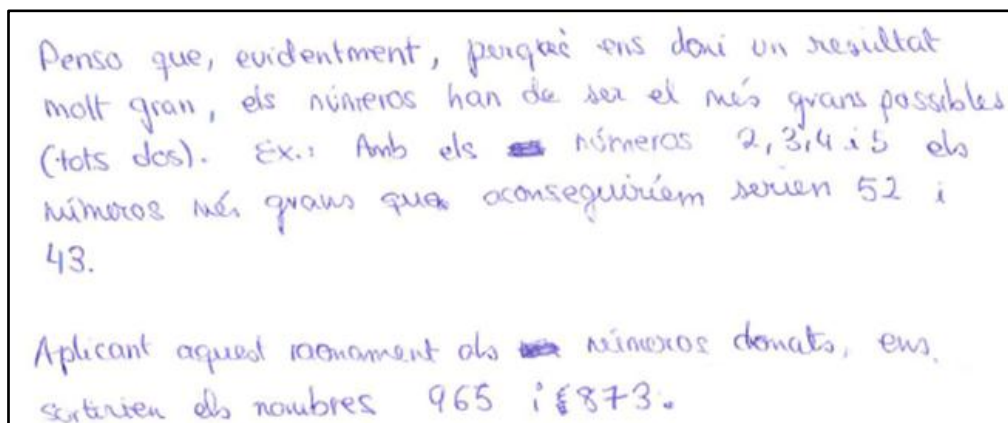 Penso que, evidentment, perquè ens doni un resultat
molt gran, els números han de ser el més grans possibles
(tots dos). Ex.: Amb els números 2,3,4 i 5 els
números més grans que aconseguiríem serien 52 i
43.
Aplicant aquest raonament als números donats, ens
sortirien els nombres 965 i 873.